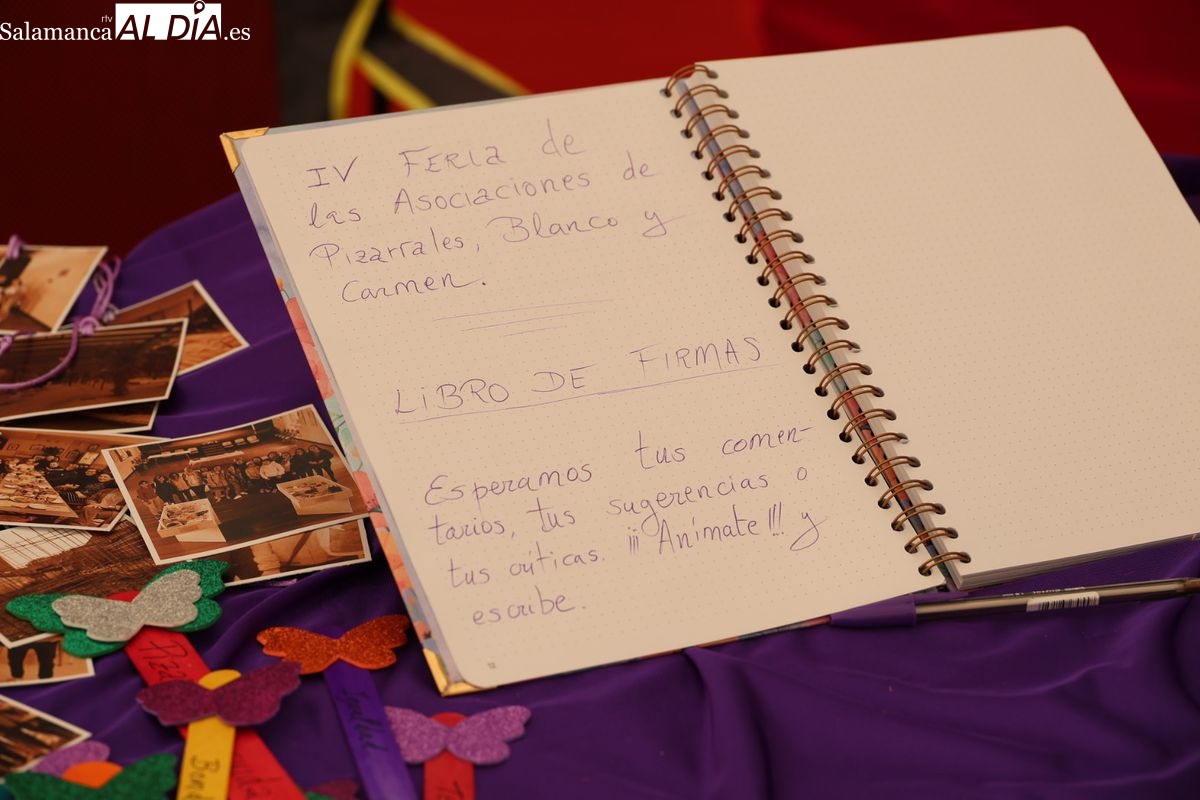 rtv
SalamancaALDÍA.es
IV FERIA de
las Asociaciones de
Pizarrales, Blanco y
Carmen.
LIBRO DE FIRMAS
Esperamos tus comen-
tarios, tus sugerencias o
tus críticas. ¡¡¡Anímate!!! y
escribe.
12
Igualdad